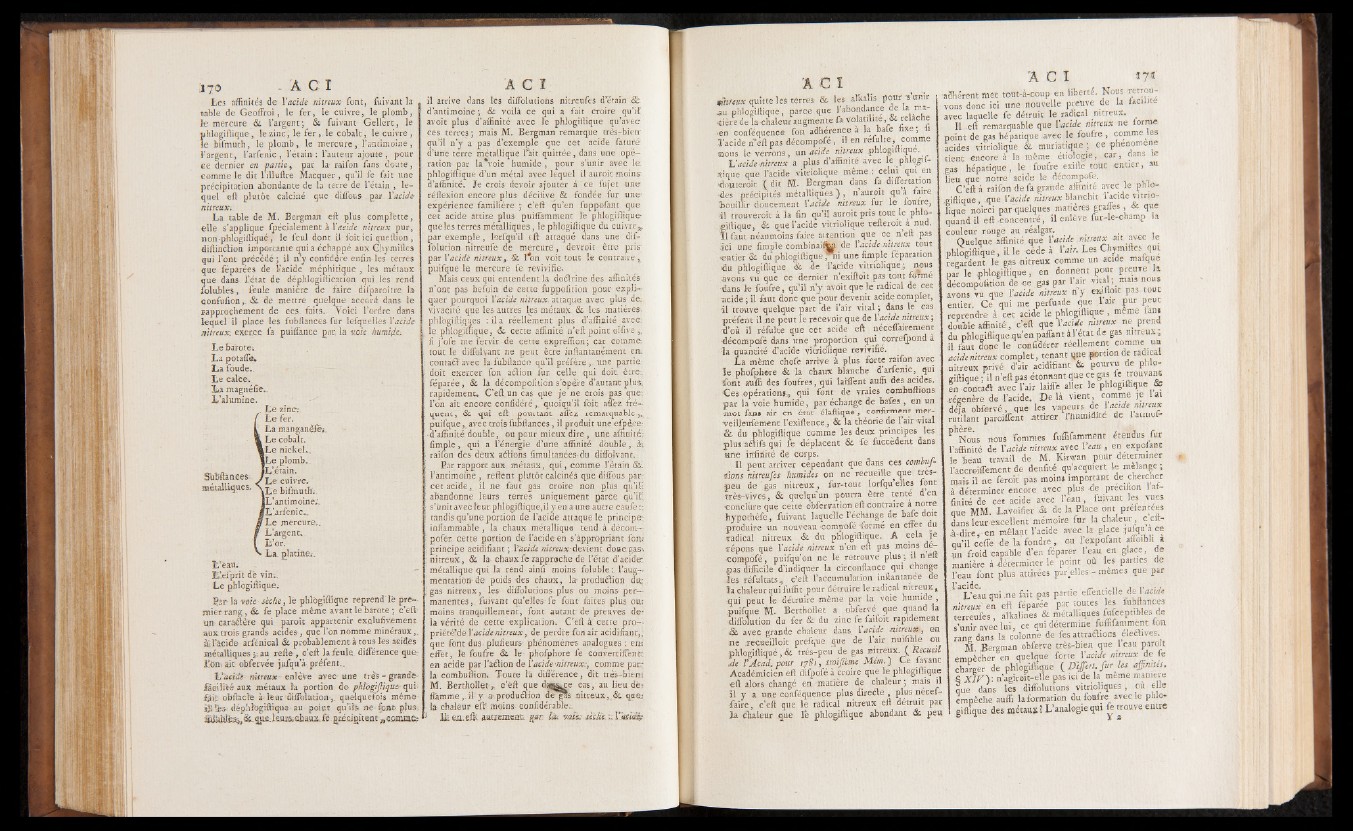 170 - A C I
Les affinités de l'acide nitreux sont, suivant la
table de Geoffroi, le fer, le cuivre, le plomb,
le mercure & l'argent; & suivant Gellert, le
phlogistique, le zinc, le fer, le cobalt, le cuivre,
le bismuth, le plomb, le mercure, l'antimoine,
l'argent, l'arsenic, l'étain: l'auteur ajoute, pour
ce dernier en partie, par la raison sans doute,
comme le dit l'illustre Macquer, qu'il se fait une
précipitation abondante de la terre de l'étain, le-
quel est plutôt calciné que dissous par l'acide
nitreux.
La table de M. Bergman est plus complette,
elle s'applique spécialement à l'acide nitreux pur,
non-phlogistiqué, le seul dont il soit ici question,
distinction importante qui a échappé aux Chymistes
qui l'ont précédé; il n'y considère enfin les terres
que séparées de l'acide méphitique, les métaux
que dans l'état de déphlogistication qui les rend
solubles, seule manière de faire disparoître la
confusion, & de mettre quelque accord dans le
rapprochement de ces faits. Voici l'ordre dans
lequel il place les substances sur lesquelles l'acide
nitreux exerce sa puissance par la voie humide.
Le barote.
La potasse.
La soude.
Le calce.
La magnésie.
L'alumine.
Le zinc.
Le fer.
La manganèse.
Le cobalt.
Le nickel.
Le plomb.
L'étain.
Substances
métalliques.
Le cuivre.
Le bismuth.
L'antimoine.
L'arsenic.
Le mercure.
L'argent.
L'or.
La platine.
L'eau.
L'esprit de vin.
Le phlogistique.
Par la voie sèche, le phlogistique reprend le pre-
mier rang, & se place même avant le barote; c'est
un caractère qui paroît appartenir exclusivement
aux trois grands acides, que l'on nomme minéraux,
à l'acide arsenical & probablement à tous les acides
métalliques; au reste, c'est la seule différence que
l'on ait observée jusqu'à présent.
L'acide nitreux enlève avec une très-grande
facilité aux métaux la portion de phlogistique qui
fait obstacle à leur dissolution, quelquefois même
il les déphlogistique au point qu'ils ne sont plus
solubles, & que leurs chaux se précipitent, comme
A C I
il arrive dans les dissolutions nitreuses d'étain &
d'antimoine; & voilà ce qui a fait croire qu'il
avoit plus d'affinité avec le phlogistique qu'avec
ces terres; mais M. Bergman remarque très-bien
qu'il n'y a pas d'exemple que cet acide saturé
d'une terre métallique l'ait quittée, dans une opé-
ration par la voie humide, pour s'unir avec le
phlogistique d'un métal avec lequel il auroit moins
d'affinité. Je crois devoir ajouter à ce sujet une
réflexion encore plus décisive & fondée sur une
expérience familière; c'est qu'en supposant que
cet acide attire plus puissamment le phlogistique
que les terres métalliques, le phlogistique du cuivre,
par exemple, lorsqu'il est attaqué dans une dis-
solution nitreuse de mercure, devroit être pris
par l'acide nitreux, & l'on voit tous le contraire,
puisque le mercure se revivifie.
Mais ceux qui entendent la doctrine des affinités
n'ont pas besoin de cette supposition pour expli-
quer pourquoi l'acide nitreux attaque avec plus de
vivacité que les autres les métaux & les matières
phlogistiques: il a réellement plus d'affinité avec
le phlogistique, & cette affinité n'est point oisive,
si j'ose me servir de cette expression; car comme
tout le dissolvant ne peut être instantanément en
contact avec la substance qu'il préfère, une partie
doit exercer son action sur celle qui doit être
séparée, & la décomposition s'opère d'autant plus
rapidement. C'est un cas que je ne crois pas que
l'on ait encore considéré, quoiqu'il soit assez fré-
quent, & qui est pourtant assez remarquable,
puisque, avec trois substances, il produit une espèce
d'affinité double, ou pour mieux dire, une affinité
simple, qui a l'énergie d'une affinité double, à
raison des deux actions simultanées du dissolvant.
Par rapport aux métaux, qui, comme l'étain &
l'antimoine, restent plutôt calcinés que dissous par
cet acide, il ne faut pas croire non plus qu'il
abandonne leurs terres uniquement parce qu'il
s'unit avec leur phlogistique, il y en a une autre cause:
tandis qu'une portion de l'acide attaque le principe
inflammable, la chaux métallique tend à décom-
poser cette portion de l'acide en s'appropriant son
principe acidifiant; l'acide nitreux devient donc gas
nitreux, & la chaux se rapproche de l'état d'acide
métallique qui la rend ainsi moins soluble: l'aug-
mentation de poids des chaux, la production du
gas nitreux, les dissolutions plus ou moins per-
manentes, suivant qu'elles se font faites plus ou
moins tranquillement, sont autant de preuves de
la vérité de cette explication. C'est à cette pro-
priété de l'acide nitreux, de perdre son air acidifiant,
que sont dus plusieurs phénomènes analogues: en
effet, le soufre & le phosphore se convertissent
en acide par l'action de l'acide nitreux, comme par
la combustion. Toute la différence, dit très-bien
M. Berthollet, c'est que dans ce cas, au lieu de
simple, il y a production de gas nitreux, & que
la chaleur est moins considérable.
Il en est autrement par la voie sèche: l'acide
A C I
nitreux quitte les terres & les alkalis pour s'unir
au phlogistique, parce que l'abondance de la ma-
tière de la chaleur augmente sa volatilité, & relâche
en conséquence son adhérence à la base fixe; si
l'acide n'est pas décomposé, il en résulte, comme
nous le verrons, un acide nitreux phlogistiqué.
L'acide nitreux a plus d'affinité avec le phlogis-
tique que l'acide vitriolique même: celui qui en
douteroit (dit M. Bergman dans sa dissertation
des précipités métalliques), n'auroit qu'à faire
bouillir doucement l'acide nitreux sur le soufre,
il trouveroit à la fin qu'il auroit pris tout le phlo-
gistique, & que l'acide vitriolique resteroit à nud.
Il faut néanmoins faire attention que ce n'est pas
ici une simple combinaison de l'acide nitreux tout
entier & du phlogistique, ni une simple séparation
du phlogistique & de l'acide vitriolique; nous
avons vu que ce dernier n'existoit pas tout formé
dans le soufre, qu'il n'y avoit que le radical de cet
acide; il faut donc que pour devenir acide complet,
il trouve quelque part de l'air vital; dans le cas
présent il ne peut le recevoir que de l'acide nitreux;
d'où il résulte que cet acide est nécessairement
décomposé dans une proportion qui correspond à
la quantité d'acide vitriolique revivifié.
La même chose arrive à plus forte raison avec
le phosphore & la chaux blanche d'arsenic, qui
sont aussi des soufres, qui laissent aussi des acides.
Ces opérations, qui sont de vraies combustions
par la voie humide, par échange de bases, en un
mot sans air en état élastique, confirment mer-
veilleusement l'existence, & la théorie de l'air vital
& du phlogistique comme les deux principes les
plus actifs qui se déplacent & se succèdent dans
une infinité de corps.
Il peut arriver cependant que dans ces combus-
tions nitreuses humides on ne recueille que très-
peu de gas nitreux, sur-tout lorsqu'elles sont
très-vives, & quelqu'un pourra être tenté d'en
conclure que cette observation est contraire à notre
hypothèse, suivant laquelle l'échange de base doit
produire un nouveau composé formé en effet du
radical nitreux & du phlogistique. A cela je
répons que l'acide nitreux n'en est pas moins dé-
composé, puisqu'on ne le retrouve plus; il n'est
pas difficile d'indiquer la circonstance qui change
les résultats, c'est l'accumulation instantanée de
la chaleur qui suffit pour détruire le radical nitreux,
qui peut le détruire même par la voie humide,
puisque M. Berthollet a observé que quand la
dissolution du fer & du zinc se faisoit rapidement
& avec grande chaleur dans l'acide nitreux, on
ne recueilloit presque que de l'air nuisible ou
phlogistiqué, & très-peu de gas nitreux. (Recueil
de l'Acad. pour 1781, troisième Mém.) Ce savant
Académicien est disposé à croire que le phlogistique
est alors changé en matière de chaleur; mais il
il y a une conséquence plus directe, plus néces-
saire, c'est que le radical nitreux est détruit par
la chaleur que le phlogistique abondant & peu
A C I 171
adhérent met tout-à-coup en liberté. Nous retrou-
vons donc ici une nouvelle preuve de la facilité
avec laquelle se détruit le radical nitreux.
Il est remarquable que l'acide nitreux ne forme
point de gas hépatique avec le soufre, comme les
acides vitriolique & muriatique; ce phénomène
tient encore à la même étiologie, car, dans le
gas hépatique, le soufre existe tout entier, au
lieu que notre acide le décompose.
C'est à raison de sa grande affinité avec le phlo-
gistique, que l'acide nitreux blanchit l'acide vitrio-
lique noirci par quelques matières grasses, & que
quand il est concentré, il enlève sur-le-champ la
couleur rouge au réalgar.
Quelque affinité que l'acide nitreux ait avec le
phlogistique, il le cède à l'air. Les Chymistes qui
regardent le gas nitreux comme un acide masqué
par le phlogistique, en donnent pour preuve la
décomposition de ce gas par l'air vital; mais nous
avons vu que l'acide nitreux n'y existoit pas tout
entier. Ce qui me persuade que l'air pur peut
reprendre à cet acide le phlogistique, même sans
double affinité, c'est que l'acide nitreux ne prend
du phlogistique qu'en passant à l'état de gas nitreux;
il faut donc le considérer réellement comme un
acide nitreux complet, tenant une portion de radical
nitreux privé d'air acidifiant & pourvu de phlo-
gistique; il n'est pas étonnant que ce gas se trouvant
en contact avec l'air laisse aller le phlogistique &
régénère de l'acide. De là vient, comme je l'ai
déja observé, que les vapeurs de l'acide nitreux
rutilant paroissent attirer l'humidité de l'atmos-
phère.
Nous nous sommes suffisamment étendus sur
l'affinité de l'acide nitreux avec l'eau, en exposant
le beau travail de M. Kirwan pour déterminer
l'accroissement de densité qu'acquiert le mêlange;
mais il ne seroit pas moins important de chercher
à déterminer encore avec plus de précision l'af-
finité de cet acide avec l'eau, suivant les vues
que MM. Lavoisier & de la Place ont présentées
dans leur excellent mémoire sur la chaleur, c'est-
à-dire, en mêlant l'acide avec la glace jusqu'à ce
qu'il cesse de la fondre, ou l'exposant affoibli à
un froid capable d'en séparer l'eau en glace, de
manière à déterminer le point où les parties de
l'eau sont plus attirées par elles-mêmes que par
l'acide.
L'eau qui ne fait pas partie essentielle de l'acide
nitreux en est séparée par toutes les substances
terreuses, alkalines & métalliques susceptibles de
s'unir avec lui, ce qui détermine suffisamment son
rang dans la colonne de ses attractions électives.
M. Bergman observe très-bien que l'eau paroît
empêcher en quelque sorte l'acide nitreux de se
charger de phlogistique (Dissert. sur les affinités.
§ XIV): n'agiroit-elle pas ici de la même manière
que dans les dissolutions vitrioliques, où elle
empêche aussi la formation du soufre avec le phlo-
gistique des métaux? L'analogie qui se trouve entre
Y 2